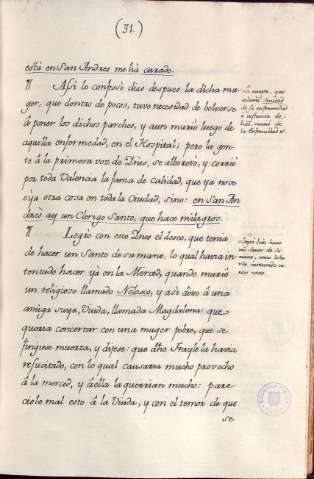 (31.)
està en San Andres me ha curado.
¶ Assi lo confesò dias despues la dicha mu-
ger, que dentro de pocos, tuvo necesidad de bolverse
à poner los dichos parches, y aun muriò luego de
aquella enfermedad, en el Hospital; pero la gen-
te à la primera voz de Dñes, se alborotò, y corriò
por toda Valencia la fama de calidad, que ya no se
oìa otra cosa en toda la Ciudad, sino: en San An-
drès ay un Clerigo Santo, que hace milagros.
¶ Logrò con esto Dñes el deseo, que tenia
de hacer un Santo de su mano, lo qual havia in-
tentado hacer ya en la Merced, quando muriò
un religioso llamado Nolasco, y assi dixo à una
amiga suya, Viuda, llamada Magdalena: que
queria concertar con una muger pobre, que se
fingiese muerta, y dijese: que dho Frayle la havia
resucitado, con lo qual causaria mucho provecho
à la merced, y à ella la querrian mucho: pare-
ciole mal esto à la Viuda, y con el temor de que
se
La muger, que
de su enfermedad